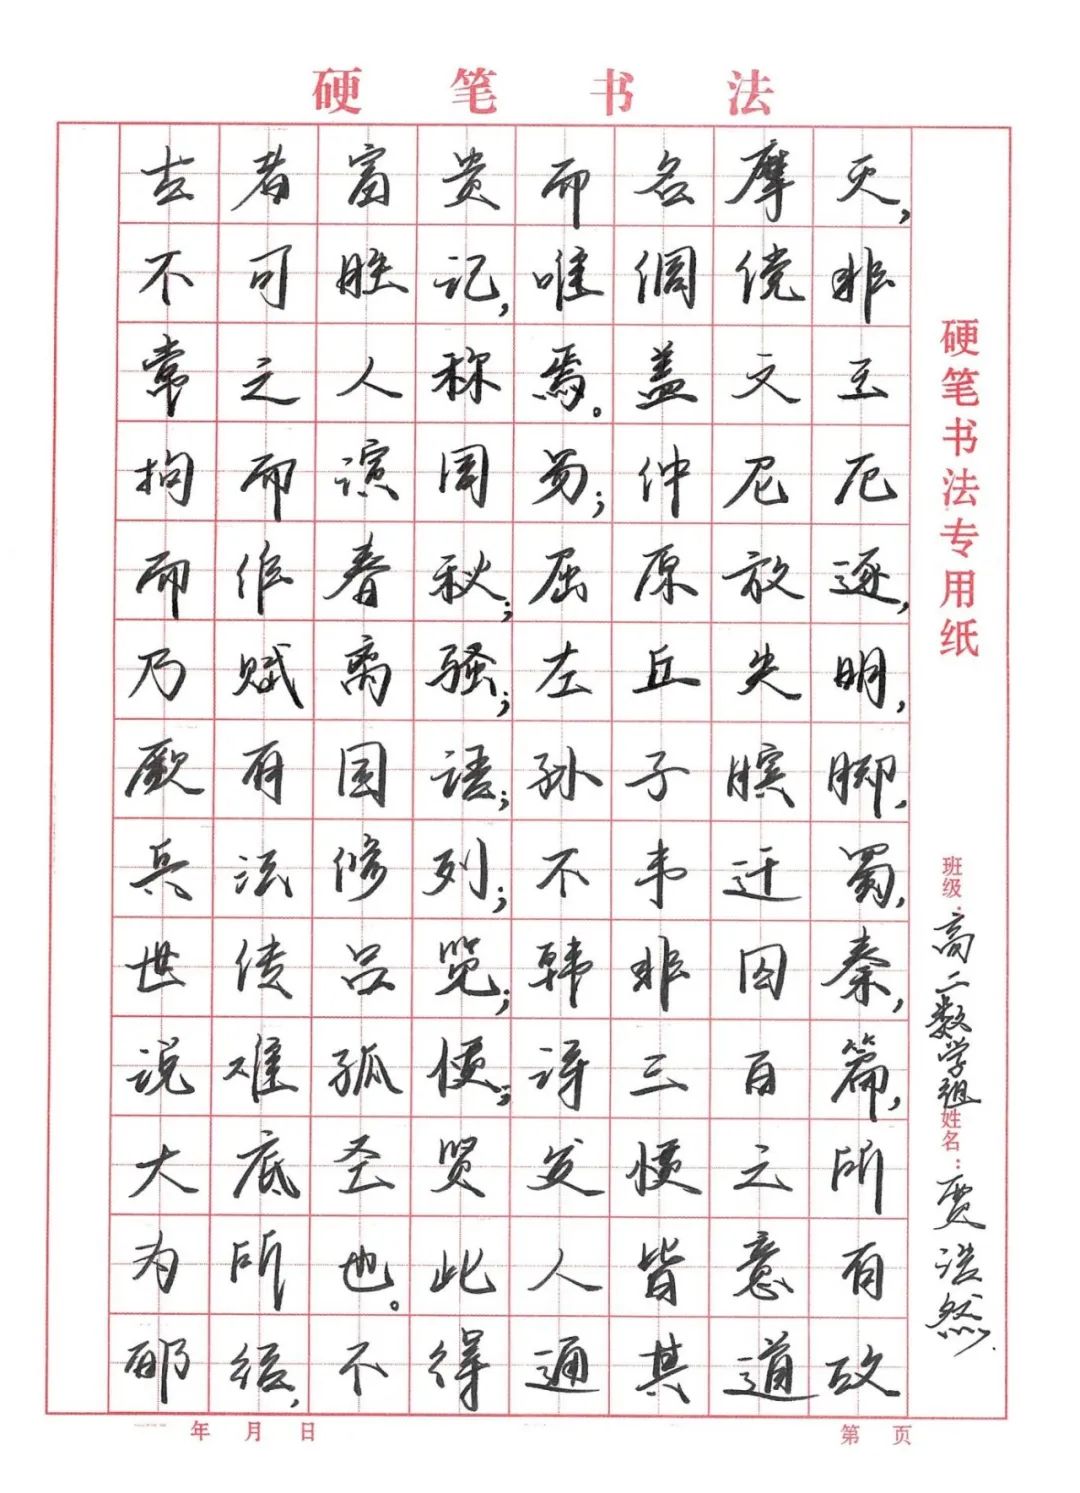 硬笔书法
古者富贵而名摩灭,
不可胜记,唯倜傥非
常之人称焉。盖文王
拘而演周易;仲尼厄
而作春秋;屈原放逐,
乃赋离骚;左丘失明,
厥有国语;孙子膑脚,
兵法修列;不韦迁蜀,
世传吕览;韩非囚秦,
说难孤愤;诗三百篇,
大底圣贤发愤之所
为所也。此人皆意有
郁结,不得通其道故
硬笔书法专用纸
班级:高二数学组 姓名:浩然.
年 月 日
第 页